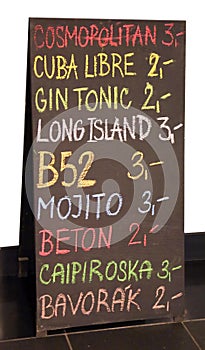 COSMOPOLITAN 3,-
CUBA LIBRE 2,-
GIN TONIC 2,-
LONG ISLAND 3,-
B52 3,-
MOJITO 3,-
BETON 2,-
CAIPIROSKA 3,-
BAVORÁK 2,-